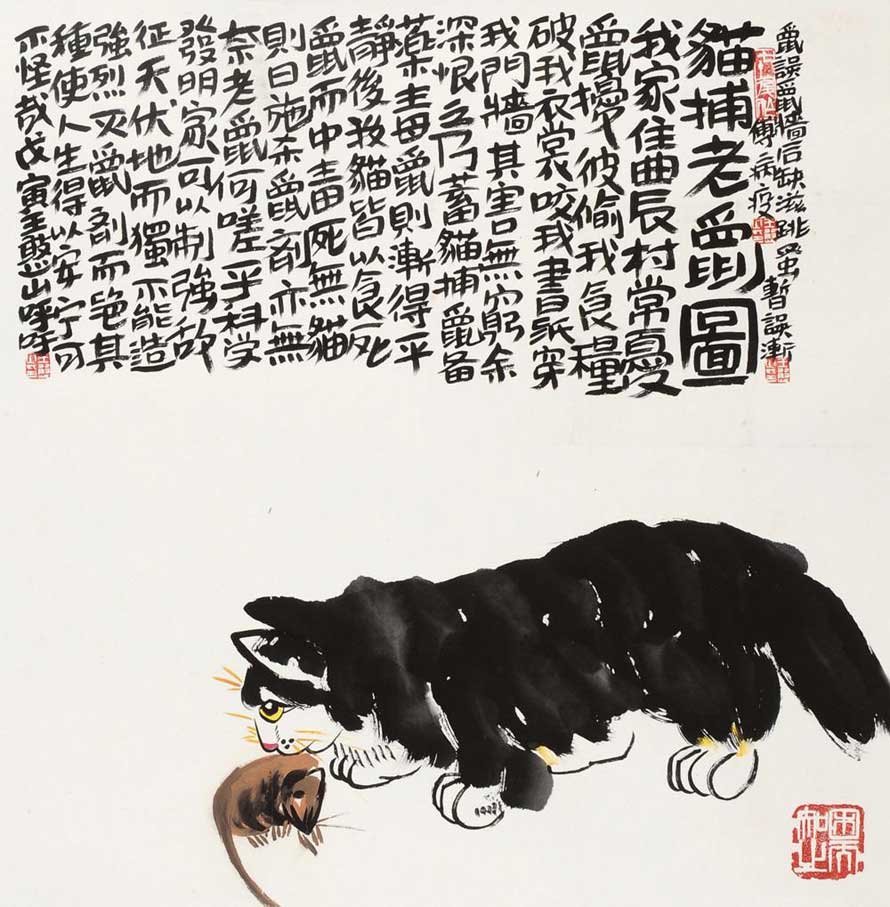 鼠誤鼠牆后缺滋跳蚤暫誤漸
傳病疗
貓捕老鼠圖
我家住農村常憂
鼠擾彼偷我食糧
破我衣裳咬我書紙穿
我門牆其害無窮余
深恨之乃蓄貓捕鼠备
藥毒鼠則漸得平
靜後我貓皆以食死
鼠而中毒死無貓
則日施杀鼠劑亦無
奈老鼠何嗟乎科学
發明家可以制強敌
征天伏地而獨不能造
強烈灭鼠劑而絕其
種使人生得以安宁可
不怪哉戊寅王憨山呼吁